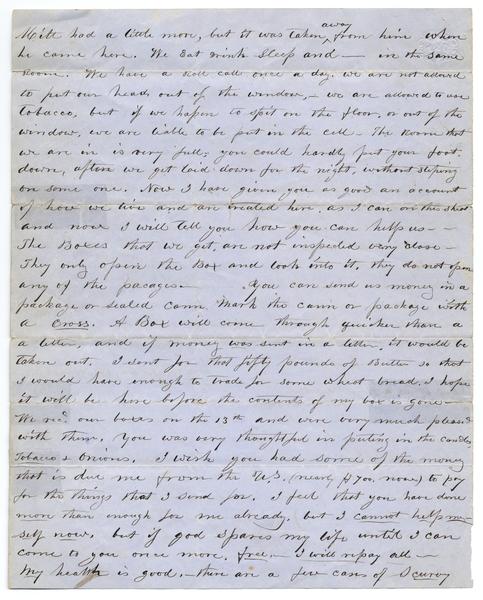 Milt had a little more, but it was taken away from him when
he came here. We Eat drink Sleep and — in the same
Room. We have a Roll call once a day. we are not allowed
to put our heads out of the window, — we are allowed to use
tobacco, but if we hapen to spit on the floor, or out of the
window, we are liable to be put in the cell — The Room that
we are in is very full; you could hardly put your foot
down, after we get laid down for the night, without steping
on some one. Now I have given you as good an account
of how we live and are treated here, as I can on this sheet
and now I will tell you how you can help us —
The Boxes that we get, are not inspected very close —
They only open the Box and look into it, they do not open
any of the pacages — You can send us money in a
package or sealed cann. Mark the cann or package with
a Cross. A Box will come through quicker than a
a letter, and if money was sent in a letter, it would be
taken out. I sent for that fifty pounds of Butter so that
I would have enough to trade for some wheat bread. I hope
it will be here before the contents of my box is gone —
We recd. our boxes on the 13th and were very much pleased
with them. You was very thoughtful in puting in the candles,
Tobacco & Onions. I wish you had some of the money
that is due me from the U.S. (nearly $700. now) to pay
for the things that I send for. I feel that you have done
more than enough for me already. but I cannot help my-
self now, but if god spares my life until I can
come to you once more, free, — I will repay all —
My health is good, — there are a few cases of Scurvy